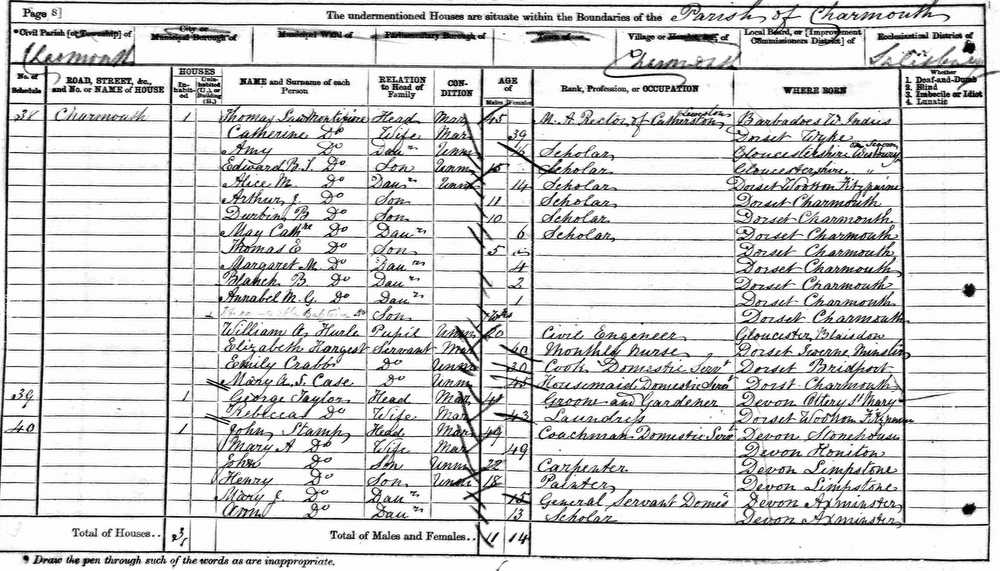 Page 8]
The undermentioned Houses are situate within the Boundaries of the Parish of Charmouth
*Civil Parish [or Township] of Charmouth
City or Municipal Borough of
Municipal Ward of
Parliamentary Borough of
Town of
Village or Hamlet, &c., of Charmouth
Local Board, or [Improvement Commissioners District] of
Ecclesiastical District of Salisbury
No. of Schedule
ROAD, STREET, &c., and No. or NAME of HOUSE
HOUSES
Inhabited
Uninhabited (U.), or Building (B.)
NAME and Surname of each Person
RELATION to Head of Family
CONDITION
AGE
Males Females
Rank, Profession, or OCCUPATION
WHERE BORN
Whether
1. Deaf-and-Dumb
2. Blind
3. Imbecile or Idiot
4. Lunatic
38 Charmouth 1 Thomas Head Mar 45 M. A. Rector of Catherston Barbadoes W. Indies
Catherine Do Wife Mar 39 Dorset Wyke
Amy Do Daur Unm 16 Scholar Gloucestershire Westbury
Edward Do Son Unm 15 Scholar Gloucestershire "
Alice M. Do Daur Unm 14 Scholar Dorset Wootton Fitzpaine
Arthur J. Do Son 11 Scholar Dorset Charmouth
Durbin B Do Son 10 Scholar Dorset Charmouth
May Cathre Do Daur 6 Scholar Dorset Charmouth
Thomas E Do Son 5 Dorset Charmouth
Margaret M. Do Daur 4 Dorset Charmouth
Blanch B Do Daur 2 Dorset Charmouth
Annabel M. G. Do Daur 1 Dorset Charmouth
Do Son Dorset Charmouth
William A. Hurle Pupil Unm 20 Civil Engineer Gloucester Blaisdon
Elizabeth Hargest Servant Mar 40 Monthly Nurse Dorset Iwerne Minster
Emily Crabb Do Unm 30 Cook Domestic Servt Dorset Bridport
Mary A. S. Case Do Unm Housemaid Domestic Servt Dorst Charmouth
39 1 George Taylor Head Mar 41 Groom and Gardener Devon Ottery St Mary
Rebecca Do Wife Mar 43 Laundress Dorset Wootton Fitzpaine
40 1 John Stamp Head Mar 49 Coachman Domestic Servt Devon Stonehouse
Mary A Do Wife Mar 49 Devon Honiton
John Do Son Unm 22 Carpenter Devon Limpstone
Henry Do Son Unm 18 Painter Devon Limpstone
Mary J. Do Daur 15 General Servant Domes Devon Axminster
Do Daur 13 Scholar Devon Axminster
Total of Houses.. 3 Total of Males and Females.. 11 14
* Draw the pen through such of the words as are inappropriate.